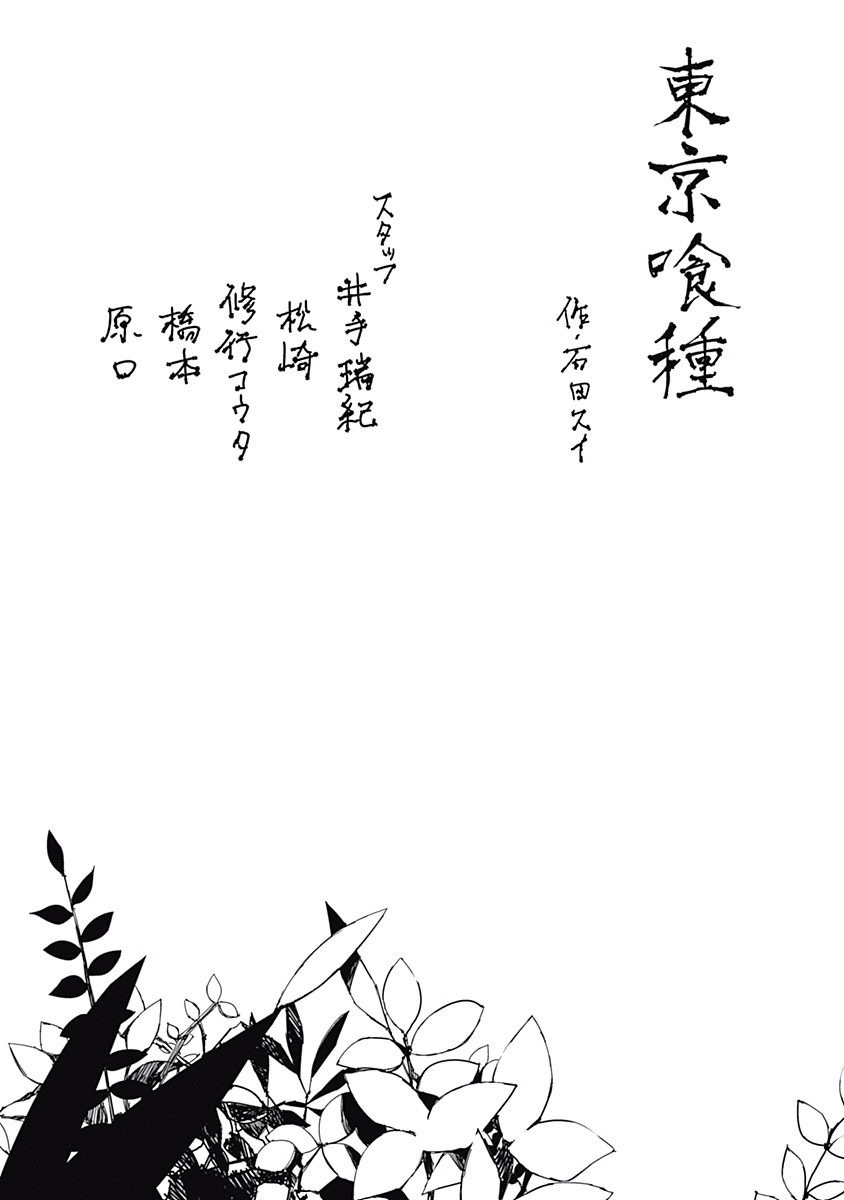 東京喰種
作・石田スイ
スタッフ
井手瑞紀
松崎
修行コウタ
橋本
原口